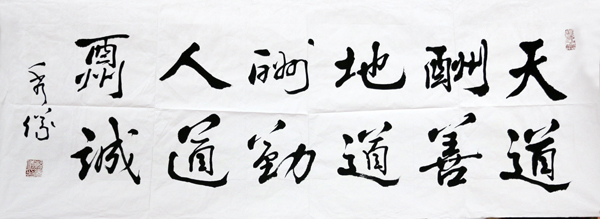 天道
酬善
地道
酬勤
人道
酬誠